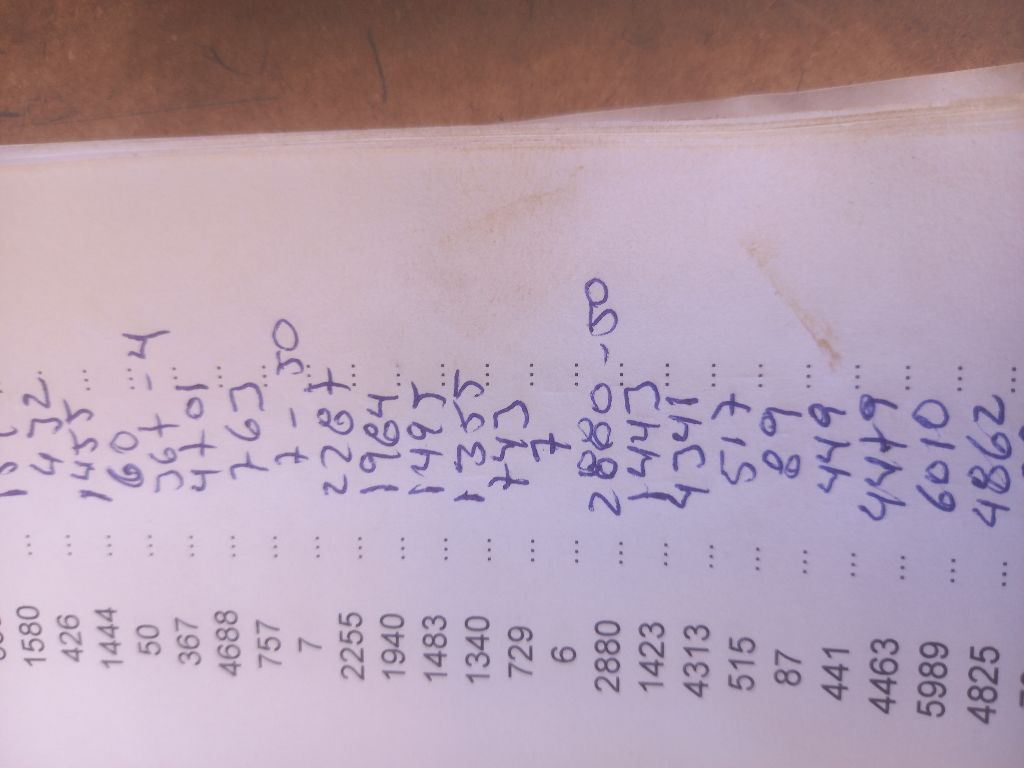 1580 ... ...
426 ... 432 ...
1444 ... 1455 ...
50 ... 60 ...
367 ... 367 - 4 ...
4688 ... 4701 ...
757 ... 763 ...
7 ... 7 - 50 ...
2255 ... 2287 ...
1940 ... 1964 ...
1483 ... 1495 ...
1340 ... 1355 ...
729 ... 743 ...
6 ... 7 ...
2880 ... 2880 - 50 ...
1423 ... 1443 ...
4313 ... 4341 ...
515 ... 517 ...
87 ... 89 ...
441 ... 449 ...
4463 ... 4479 ...
5989 ... 6010 ...
4825 ... 4862 ...